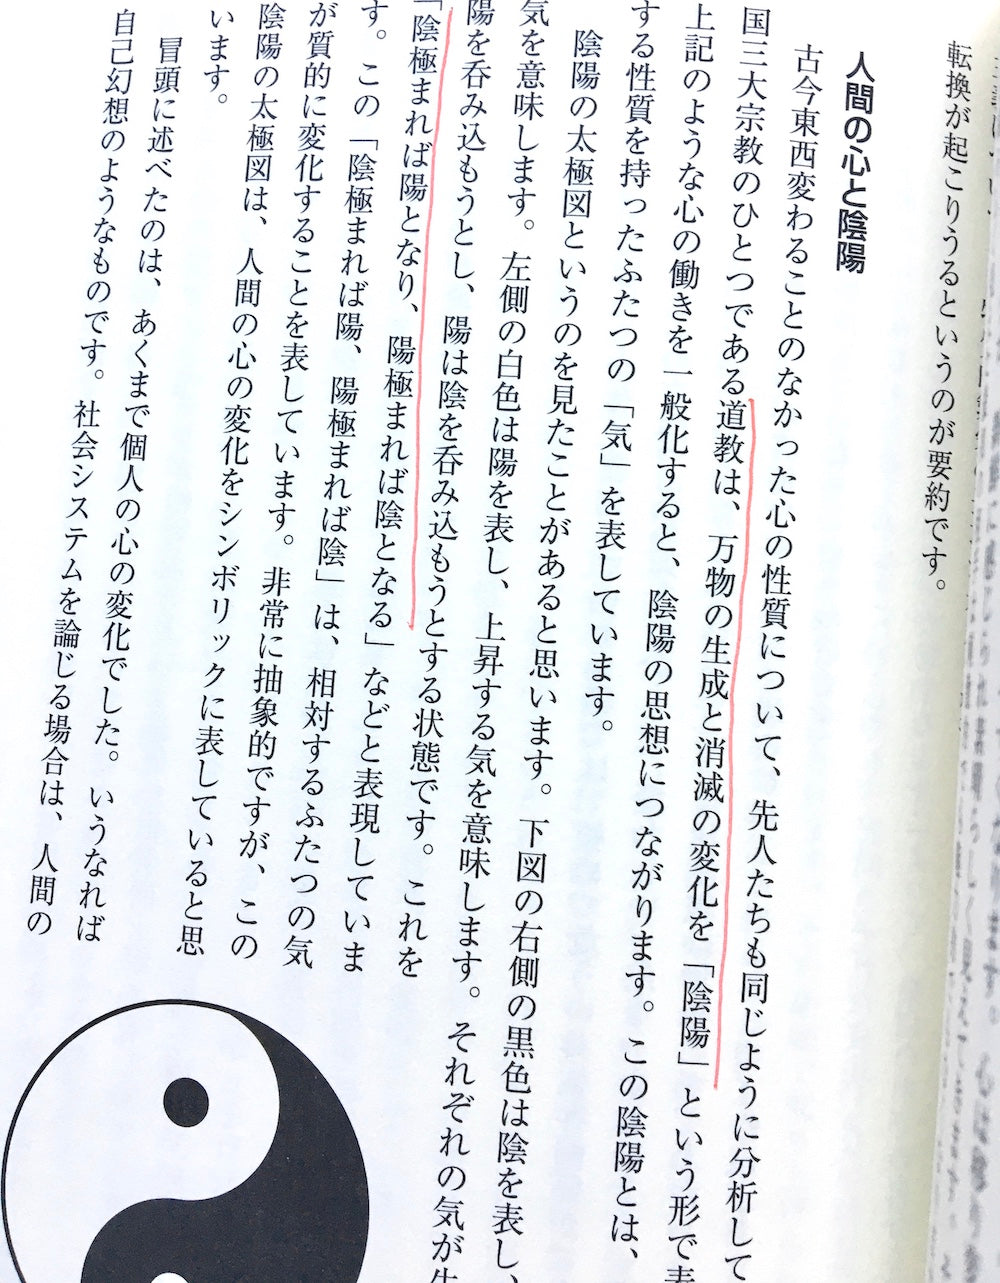 転換が起こりうるというのが要約です。
人間の心と陰陽
古今東西変わることのなかった心の性質について、先人たちも同じように分析して
国三大宗教のひとつである道教は、万物の生成と消滅の変化を「陰陽」という形で表
上記のような心の働きを一般化すると、陰陽の思想につながります。この陰陽とは、
する性質を持ったふたつの「気」を表しています。
陰陽の太極図というのを見たことがあると思います。下図の右側の黒色は陰を表し、
気を意味します。左側の白色は陽を表し、上昇する気を意味します。それぞれの気が生
陽を呑み込もうとし、陽は陰を呑み込もうとする状態です。これを
「陰極まれば陽となり、陽極まれば陰となる」などと表現していま
す。この「陰極まれば陽、陽極まれば陰」は、相対するふたつの気
が質的に変化することを表しています。非常に抽象的ですが、この
陰陽の太極図は、人間の心の変化をシンボリックに表していると思
います。
冒頭に述べたのは、あくまで個人の心の変化でした。いうなれば
自己幻想のようなものです。社会システムを論じる場合は、人間の